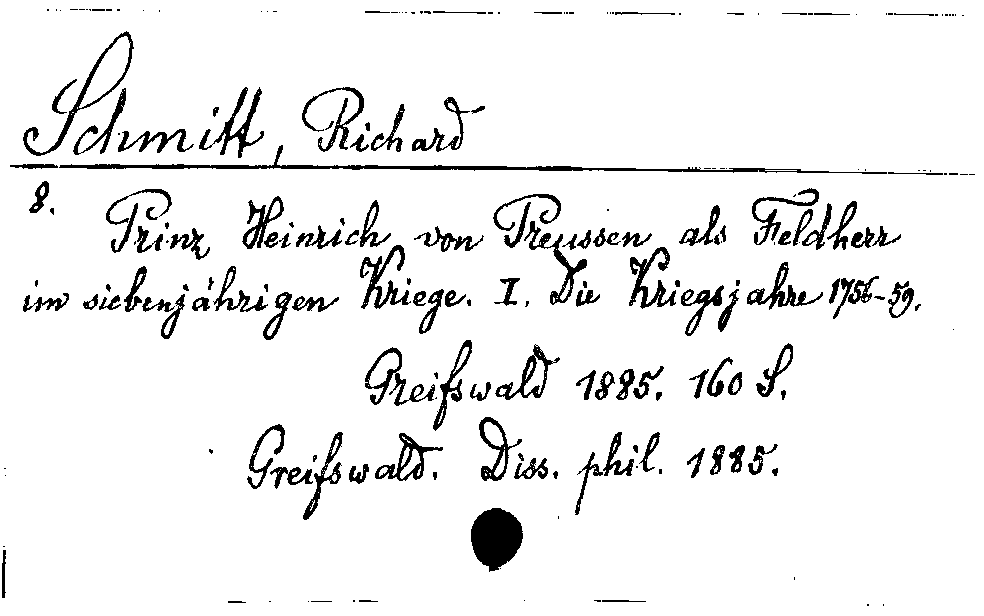 Schmitt, Richard
8. Prinz Heinrich von Preussen als Feldherr
im siebenjährigen Kriege. I. Die Kriegsjahre 1756-59.
Greifswald 1885. 160 S.
Greifswald. Diss. phil. 1885.